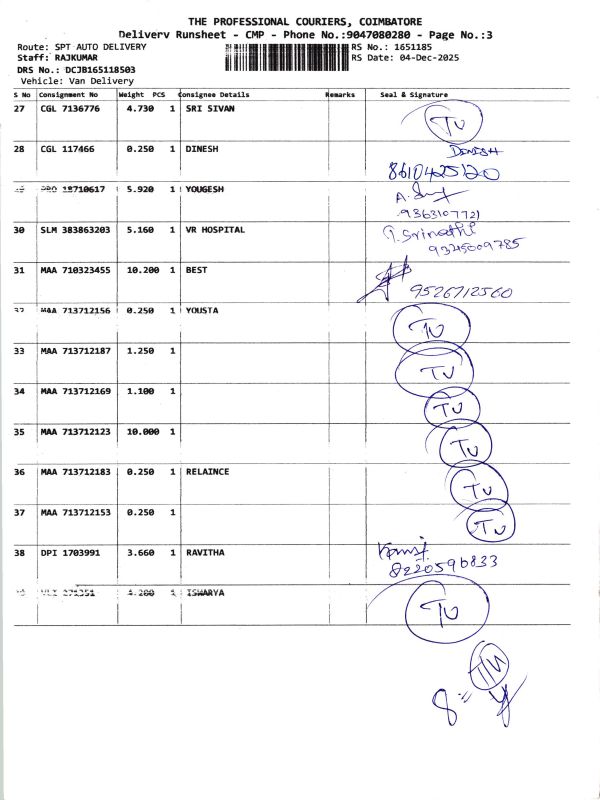 THE PROFESSIONAL COURIERS, COIMBATORE
Delivery Runsheet - CMP - Phone No.:9047080280 - Page No.:3
Route: SPT AUTO DELIVERY RS No.: 1651185
Staff: RAJKUMAR RS Date: 04-Dec-2025
DRS No.: DCJB165118503
Vehicle: Van Delivery
S No Consignment No Weight PCS Consignee Details Remarks Seal & Signature
27 CGL 7136776 4.730 1 SRI SIVAN TU
28 CGL 117466 0.250 1 DINESH DINISH
8610425120
18710617 5.920 1 YOUGESH A.
9363107721
30 SLM 383863203 5.160 1 VR HOSPITAL P. Srinathi
9345009785
31 MAA 710323455 10.200 1 BEST
9526712560
32 MAA 713712156 0.250 1 YOUSTA TU
33 MAA 713712187 1.250 1 TU
34 MAA 713712169 1.100 1 TU
35 MAA 713712123 10.000 1 TU
36 MAA 713712183 0.250 1 RELAINCE TU
37 MAA 713712153 0.250 1 TU
38 DPI 1703991 3.660 1 RAVITHA
8220596833
1 ISWARYA TU
8 =